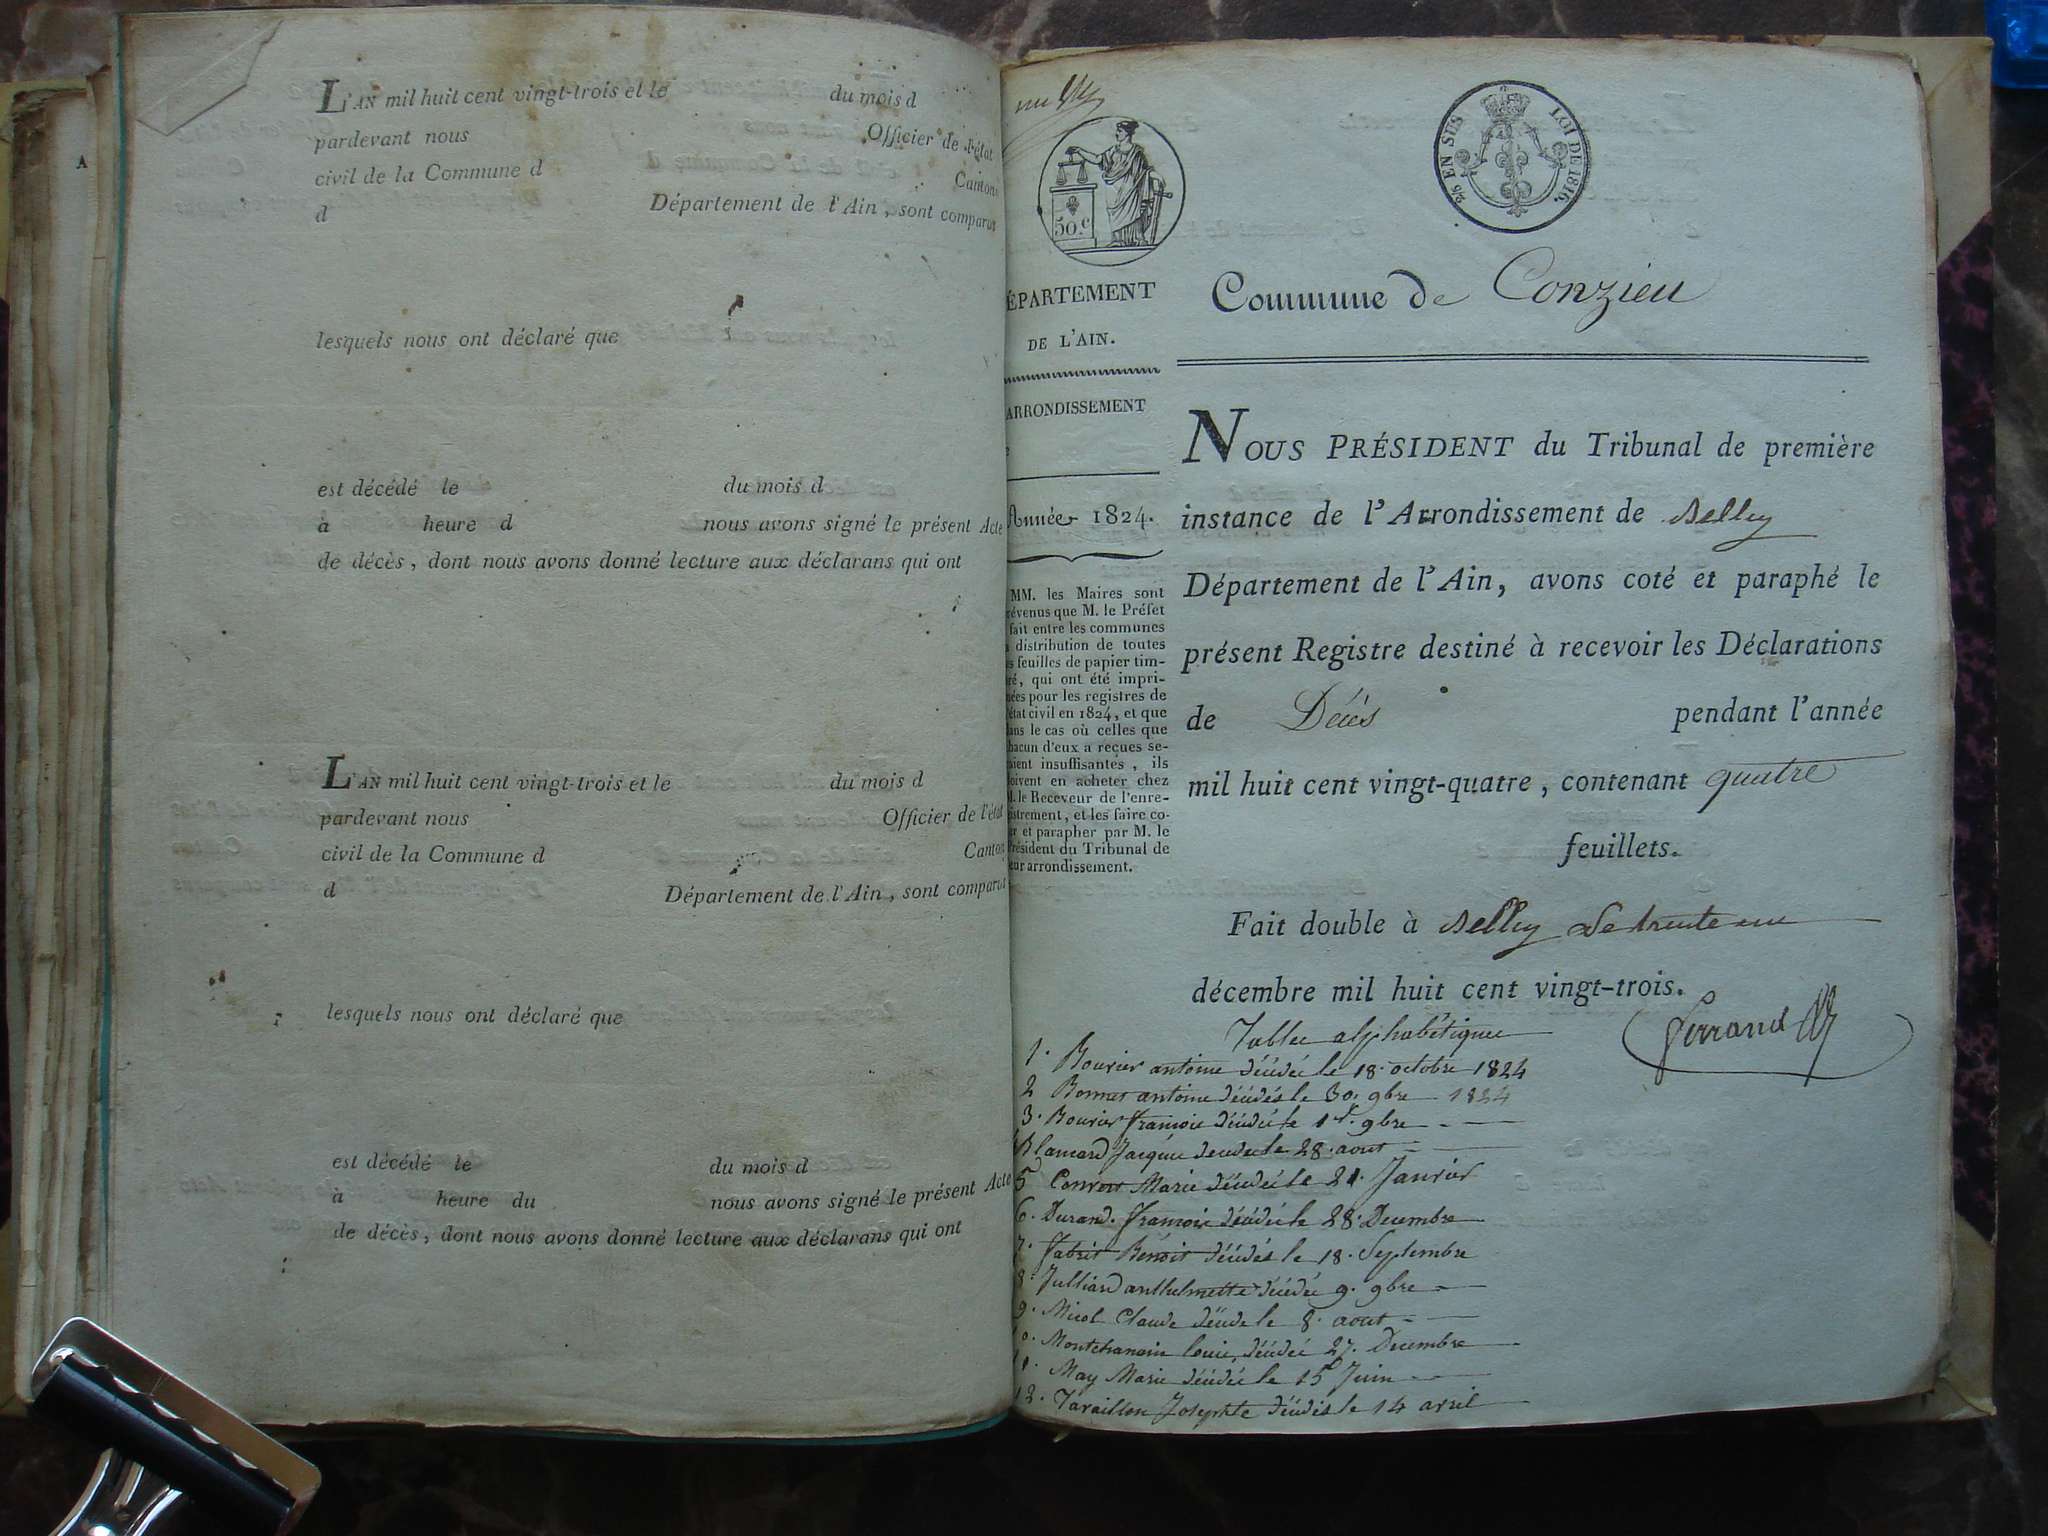 L'AN mil huit cent vingt-trois et le du mois d
pardevant nous Officier de l'état
civil de la Commune d Canton
d Département de l'Ain, sont comparus
lesquels nous ont déclaré que
est décédé le du mois d
à heure d nous avons signé le présent Acte
de décès, dont nous avons donné lecture aux déclarans qui ont
L'AN mil huit cent vingt-trois et le du mois d
pardevant nous Officier de l'état
civil de la Commune d Canton
d Département de l'Ain, sont comparus
lesquels nous ont déclaré que
est décédé le du mois d
à heure du nous avons signé le présent Acte
de décès, dont nous avons donné lecture aux déclarans qui ont
A
50.c
EN SUS
LOI DE 1816.
ÉPARTEMENT
DE L'AIN.
ARRONDISSEMENT
Année 1824.
MM. les Maires sont
révenus que M. le Préfet
fait entre les communes
distribution de toutes
s feuilles de papier tim-
ré, qui ont été impri-
mées pour les registres de
l'état civil en 1824, et que
dans le cas où celles que
hacun d'eux a reçues se-
raient insuffisantes, ils
doivent en acheter chez
M. le Receveur de l'enre-
istrement, et les faire co-
er et parapher par M. le
Président du Tribunal de
eur arrondissement.
Commune de Conzieu
NOUS PRÉSIDENT du Tribunal de première
instance de l'Arrondissement de Belley
Département de l'Ain, avons coté et paraphé le
présent Registre destiné à recevoir les Déclarations
de Décès pendant l'année
mil huit cent vingt-quatre, contenant quatre
feuillets.
Fait double à Belley le trente un
décembre mil huit cent vingt-trois.
Ferrand
Table alphabétique
1. Bourier antoine décédé le 18 octobre 1824
2 Bonnet antoine décédés le 30. 9bre 1824
3. Bourier françoise décédée le 1er. 9bre
Blancard Jacques décédé le 28. aout
5 Convert Marie décédée le 21. Janvier
6. Durand. françoise décédée le 28. Decembre
7. fabrit Benoit décédés le 18. Septembre
8. Julliand anthelmette décédée 9. 9bre
9. Micol Claude décédé le 8. aout
10. Montchanain Louise décédée 27. Decembre
11. May Marie décédée le 15 Juin
12. Tavaillon Josephte décédés le 14 avril